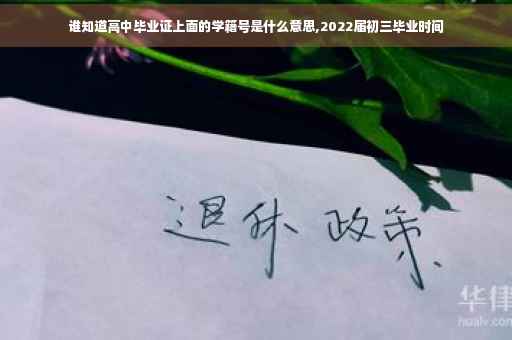 谁知道高中毕业证上面的学籍号是什么意思,2022届初三毕业时间
退休 政策
华律
hualv.com